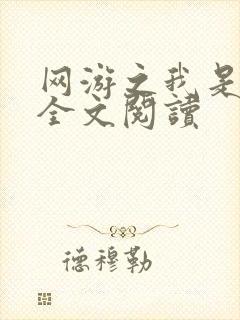 网游之我是
全文閱讀
德穆勒